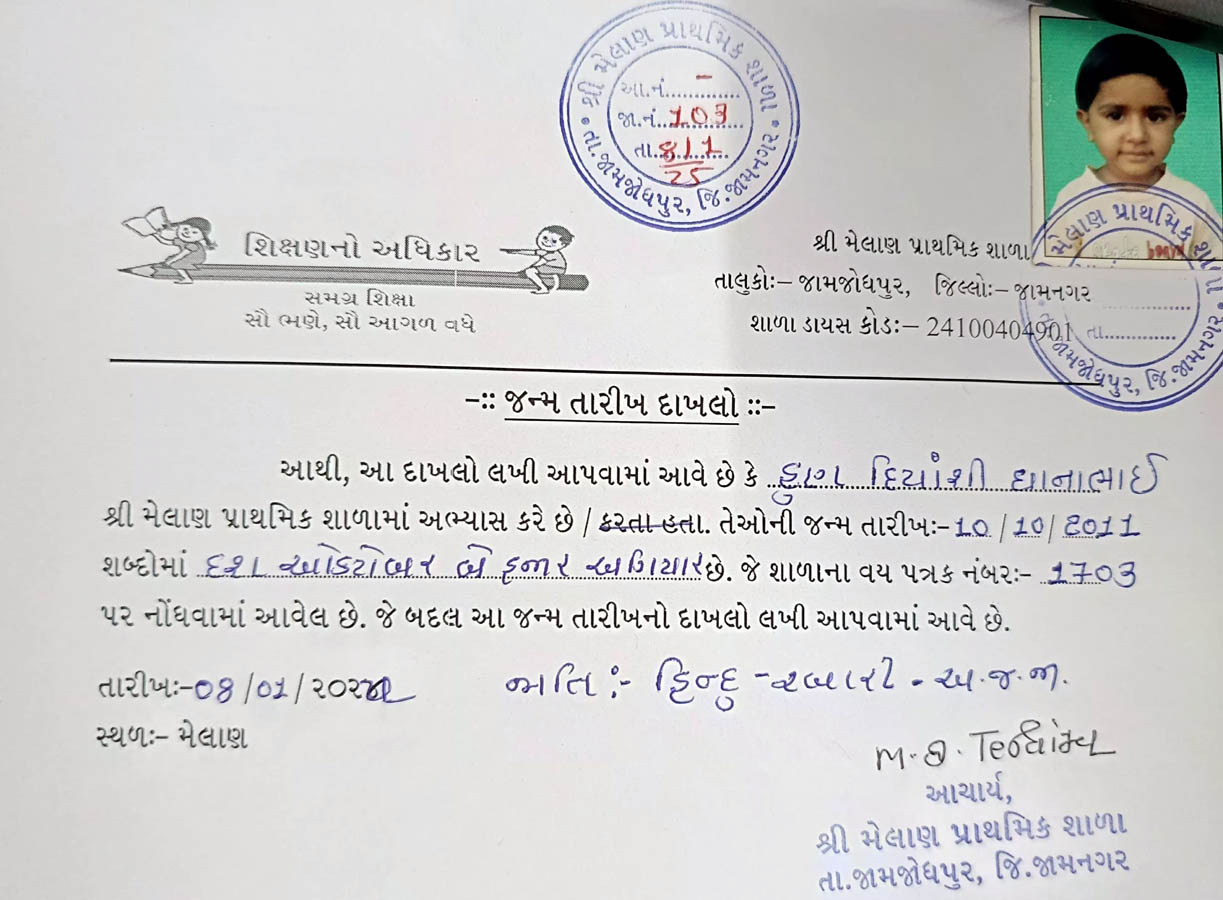 શ્રી મેલાણ પ્રાથમિક શાળા
આ.નં. –
જા.નં. 103
તા. 8/1/25
તા.જામજોધપુર, જિ.જામનગર
શિક્ષણનો અધિકાર
સમગ્ર શિક્ષા
સૌ ભણે, સૌ આગળ વધે
શ્રી મેલાણ પ્રાથમિક શાળા
તાલુકોઃ– જામજોધપુર, જિલ્લોઃ– જામનગર
શાળા ડાયસ કોડઃ– 24100404901
મેલાણ પ્રાથમિક શાળા
તા.
જામજોધપુર, જિ.જામનગર
-:: જન્મ તારીખ દાખલો ::-
આથી, આ દાખલો લખી આપવામાં આવે છે કે હુણ દિયાંશી ઘાનાભાઈ
શ્રી મેલાણ પ્રાથમિક શાળામાં અભ્યાસ કરે છે / કરતા હતા. તેઓની જન્મ તારીખઃ– 10/10/2011
શબ્દોમાં દશ ઓકટોબર બે હજાર અગિયાર છે. જે શાળાના વય પત્રક નંબરઃ– 1703
પર નોંધવામાં આવેલ છે. જે બદલ આ જન્મ તારીખનો દાખલો લખી આપવામાં આવે છે.
તારીખઃ– 08/01/૨૦૨ જાતિ :- હિન્દુ - રબારી - અ.જ.જા.
સ્થળઃ– મેલાણ
આચાર્ય,
શ્રી મેલાણ પ્રાથમિક શાળા
તા.જામજોધપુર, જિ.જામનગર